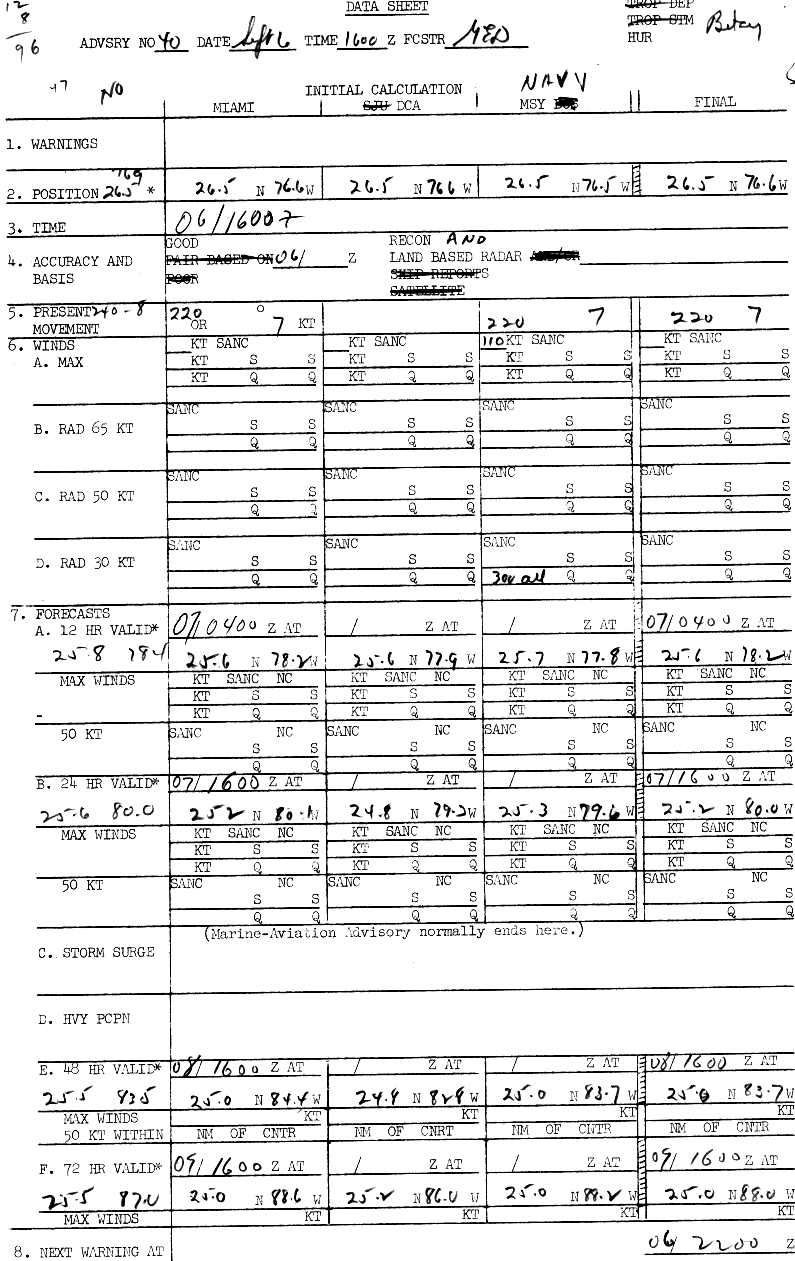 12
8
96
DATA SHEET
TROP DEP
TROP STM
HUR Betsy
ADVSRY NO 40 DATE Sept 6 TIME 1600 Z FCSTR MED
47 NO
INITIAL CALCULATION
NAVY
MIAMI SJU DCA MSY FINAL
1. WARNINGS
769
2. POSITION 26.5 * 26.5 N 76.6 W 26.5 N 766 W 26.5 N 76.5 W 26.5 N 76.6 W
3. TIME 06/1600Z
4. ACCURACY AND BASIS
GOOD
FAIR BASED ON 06/ Z
POOR
RECON AND
LAND BASED RADAR AND/OR
SHIP REPORTS
SATELLITE
5. PRESENT 240 - 8 220 ° 7 KT 220 7 220 7
MOVEMENT OR
6. WINDS KT SANC KT SANC 110 KT SANC KT SANC
A. MAX KT S S KT S S KT S S KT S S
KT Q Q KT Q Q KT Q Q KT Q Q
SANC SANC SANC SANC
B. RAD 65 KT S S S S S S S S
Q Q Q Q Q Q Q Q
SANC SANC SANC SANC
C. RAD 50 KT S S S S S S S S
Q Q Q Q Q Q Q Q
SANC SANC SANC SANC
D. RAD 30 KT S S S S S S S S
Q Q Q Q 300 all Q Q Q Q
7. FORECASTS
A. 12 HR VALID* 07/0400 Z AT / Z AT / Z AT 07/0400 Z AT
25.8 784 25.6 N 78.2 W 25.6 N 77.9 W 25.7 N 77.8 W 25.6 N 78.2 W
MAX WINDS KT SANC NC KT SANC NC KT SANC NC KT SANC NC
KT S S KT S S KT S S KT S S
KT Q Q KT Q Q KT Q Q KT Q Q
50 KT SANC NC SANC NC SANC NC SANC NC
S S S S S S S S
Q Q Q Q Q Q Q Q
B. 24 HR VALID* 07/1600 Z AT / Z AT / Z AT 07/1600 Z AT
25.6 80.0 25.2 N 80.1 W 24.8 N 79.2 W 25.3 N 79.6 W 25.2 N 80.0 W
MAX WINDS KT SANC NC KT SANC NC KT SANC NC KT SANC NC
KT S S KT S S KT S S KT S S
KT Q Q KT Q Q KT Q Q KT Q Q
50 KT SANC NC SANC NC SANC NC SANC NC
S S S S S S S S
Q Q Q Q Q Q Q Q
(Marine-Aviation Advisory normally ends here.)
C. STORM SURGE
D. HVY PCPN
E. 48 HR VALID* 08/1600 Z AT / Z AT / Z AT 08/1600 Z AT
25.5 835 25.0 N 84.4 W 24.9 N 829 W 25.0 N 83.7 W 25.0 N 83.7 W
MAX WINDS KT KT KT KT
50 KT WITHIN NM OF CNTR NM OF CNRT NM OF CNTR NM OF CNTR
F. 72 HR VALID* 09/1600 Z AT / Z AT / Z AT 09/1600 Z AT
25.5 87.0 25.0 N 88.6 W 25.2 N 86.0 W 25.0 N 88.2 W 25.0 N 88.0 W
MAX WINDS KT KT KT KT
8. NEXT WARNING AT 06/2200 Z